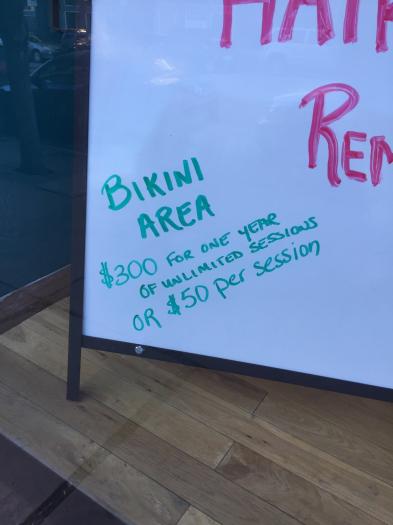 HAIR
REM
BIKINI
AREA
$300 FOR ONE YEAR
OF UNLIMITED SESSIONS
OR $50 per session